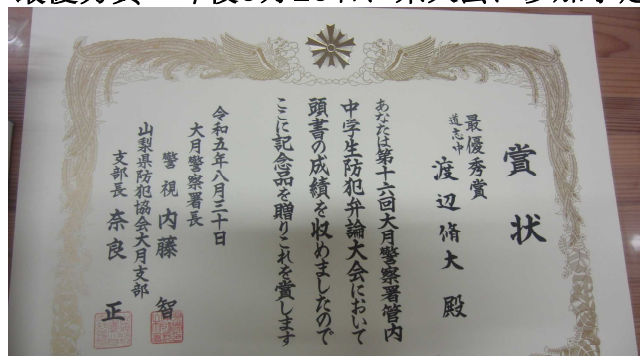 賞状
最優秀賞
道志中
渡辺脩大 殿
あなたは第十六回大月警察署管内
中学生防犯弁論大会において
頭書の成績を収めましたので
ここに記念品を贈りこれを賞します
令和五年八月三十日
大月警察署長
警視 内藤 智
山梨県防犯協会大月支部
支部長 奈良 正